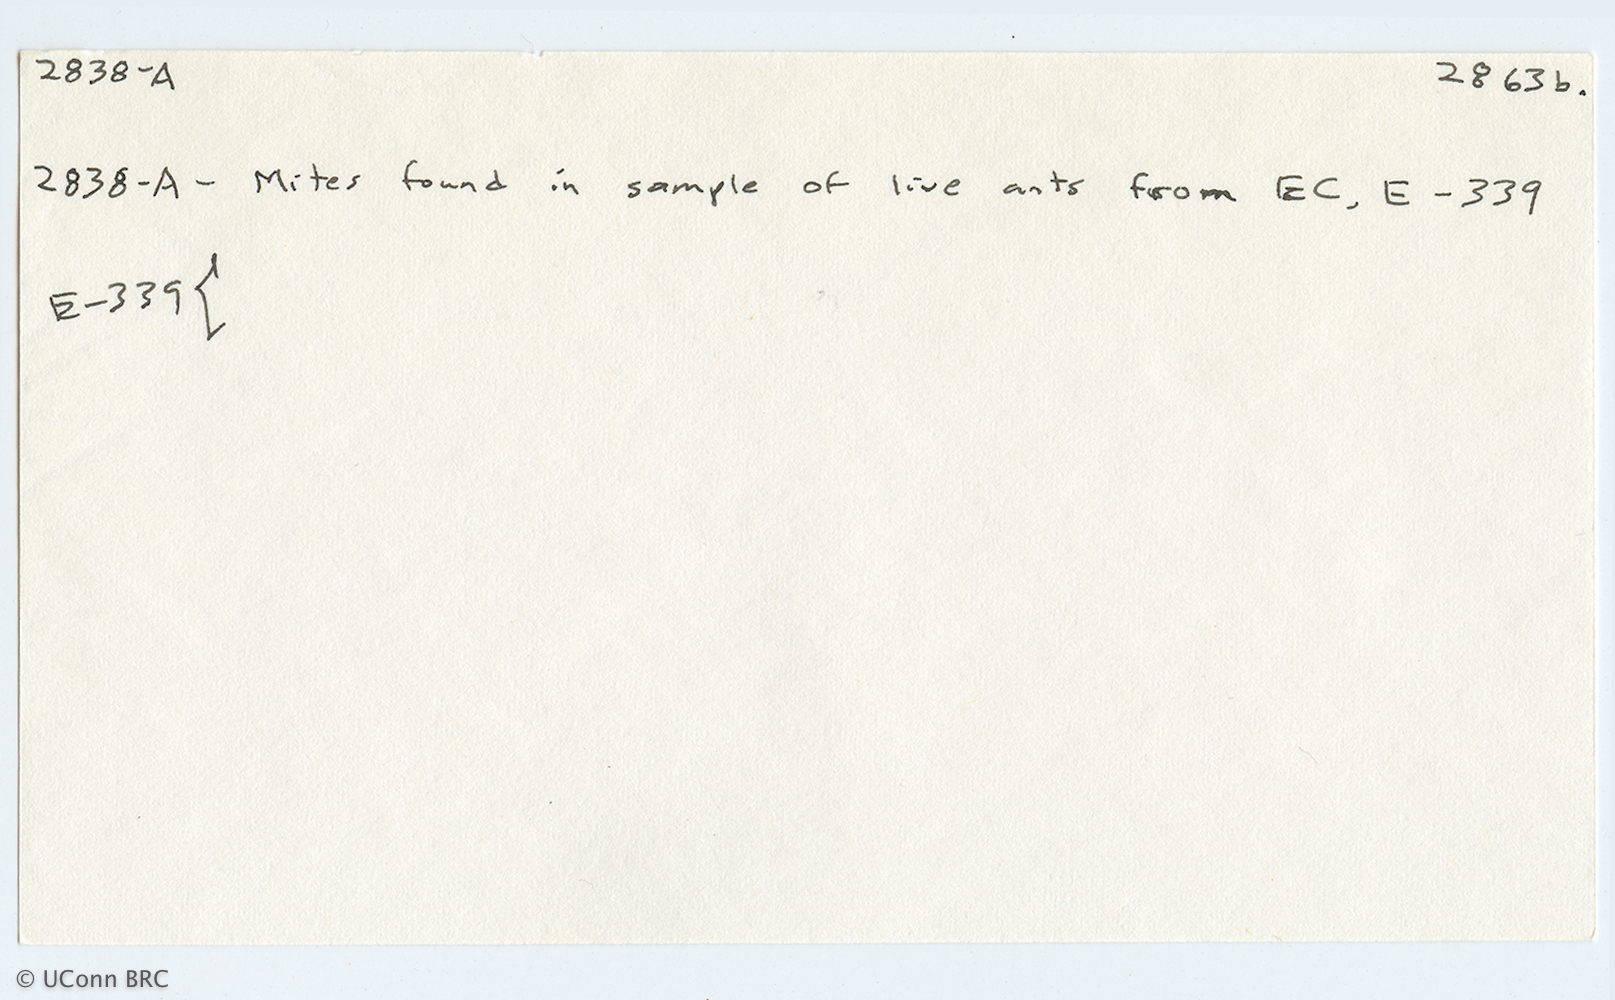 2838-A 2863b.
2838-A - Mites found in sample of live ants from EC, E-339
E-339 {
© UConn BRC